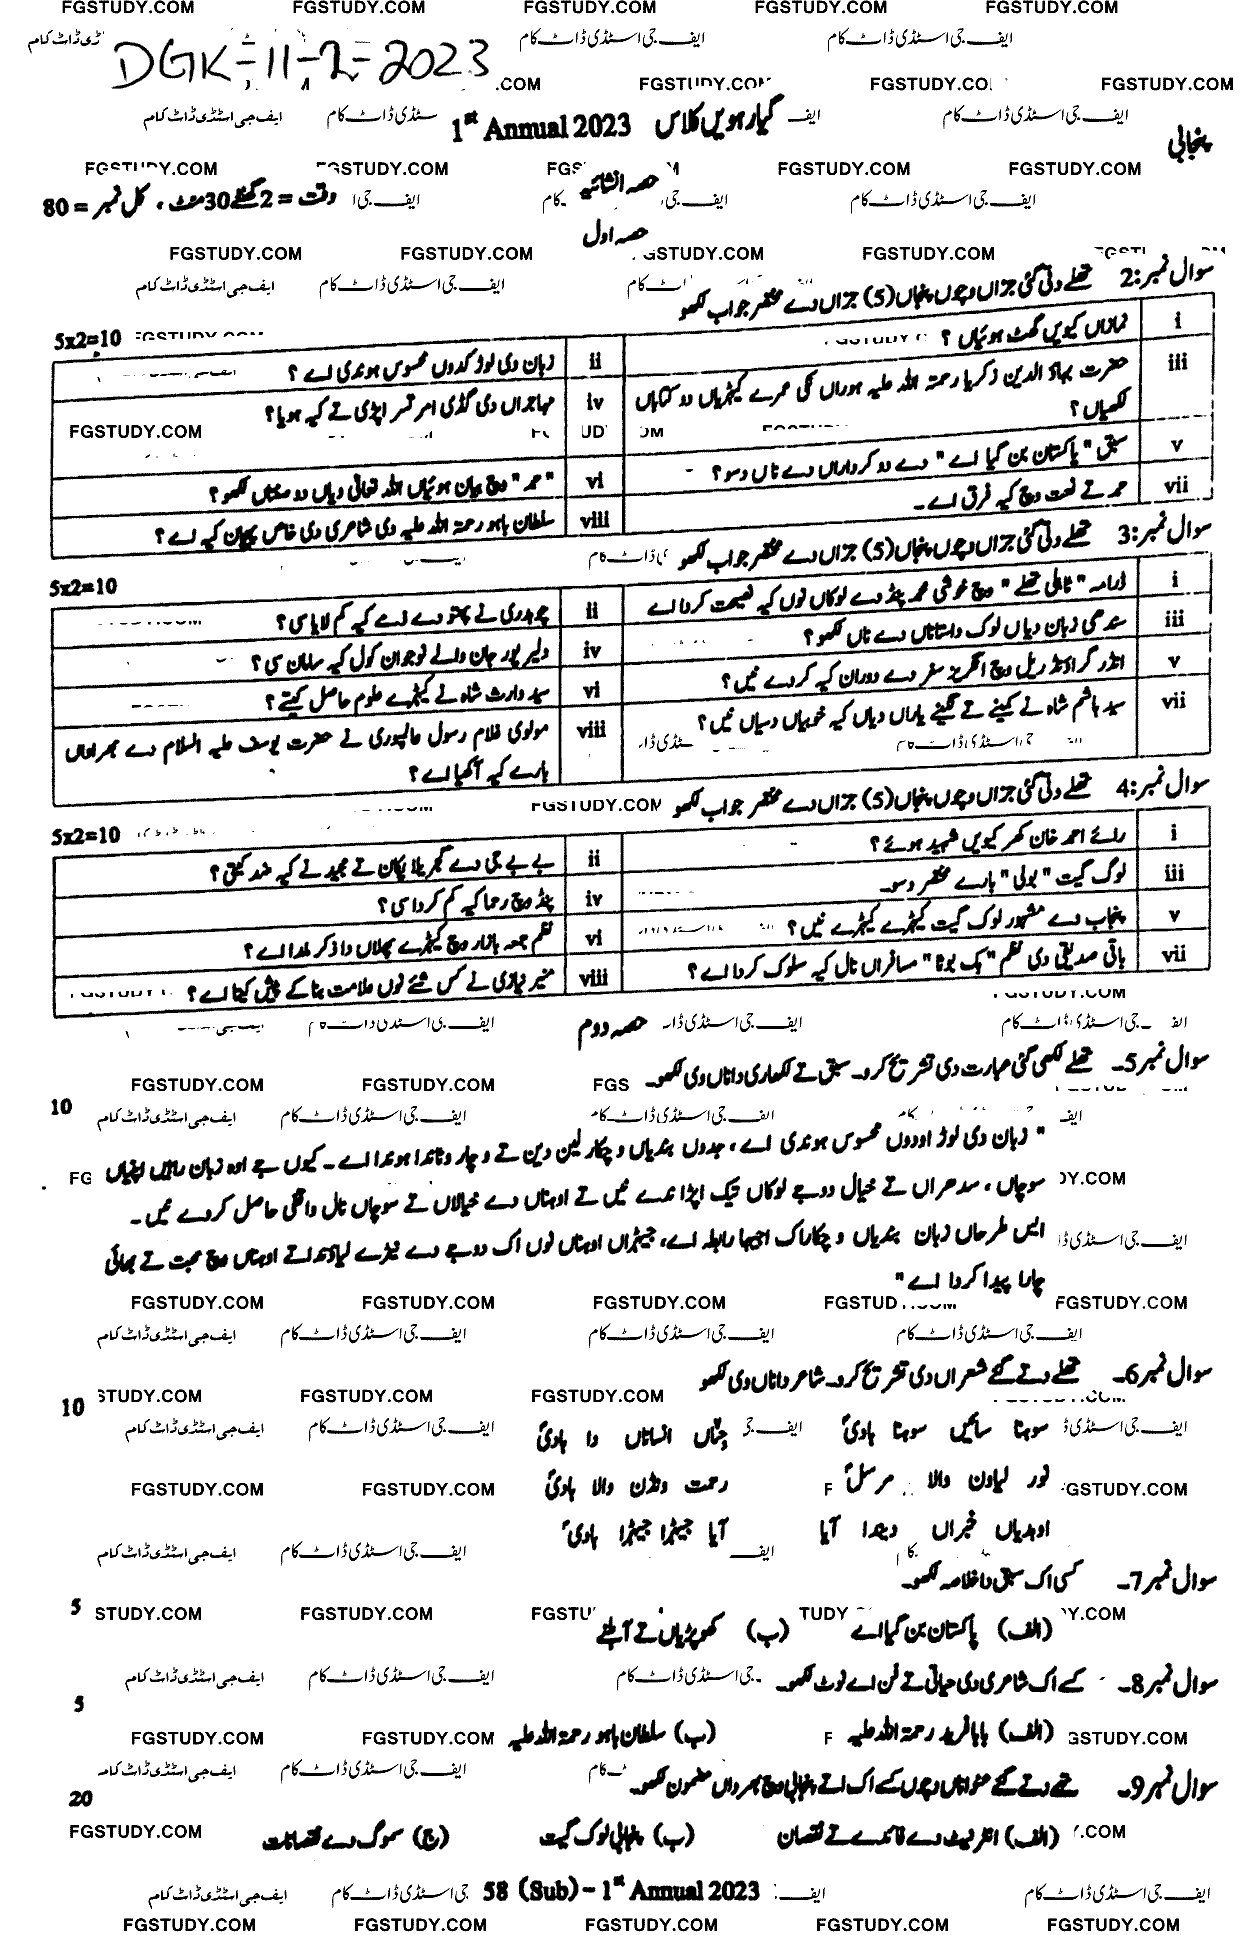 FGSTUDY.COM FGSTUDY.COM FGSTUDY.COM FGSTUDY.COM FGSTUDY.COM
DGK-11-2-2023
پنجابی
گیارھویں کلاس 1st Annual 2023
حصہ انشائیہ
وقت = 2 گھنٹے 30 منٹ ، کل نمبر = 80
حصہ اول
سوال نمبر:2 تھلے دتی گئی جزاں وچوں پنجاں (5) جزاں دے مختصر جواب لکھو
5x2=10
i نمازاں کیویں گھٹ ہوئیاں ؟
ii زبان دی لوڑ کدوں محسوس ہوندی اے ؟
iii حضرت بہاؤ الدین زکریا رحمتہ اللہ علیہ ہوراں کی عمرے کیہڑیاں دو کتاباں لکھیاں ؟
iv مہاجراں دی گڈی امرتسر اپڑی تے کیہ ہویا؟
v سبق "پاکستان بن گیا اے" دے دو کرداراں دے ناں دسو؟
vi "حمد" وچ بیان ہوئیاں اللہ تعالی دیاں دو صفتاں لکھو؟
vii حمد تے نعت وچ کیہ فرق اے۔
viii سلطان باہو رحمتہ اللہ علیہ دی شاعری دی خاص پچھان کیہ اے؟
سوال نمبر:3 تھلے دتی گئی جزاں وچوں پنجاں (5) جزاں دے مختصر جواب لکھو
5x2=10
i ڈرامہ "ٹاہلی تھلے" وچ خوشی محمد پنڈ دے لوکاں نوں کیہ نصیحت کردا اے
ii چوہدری نے پھتو دے ذمے کیہ کم لایا سی؟
iii سندھی زبان دیاں لوک داستاناں دے ناں لکھو؟
iv دلیر پور جان والے نوجوان کول کیہ سامان سی؟
v انڈر گراؤنڈ ریل وچ انگریز سفر دے دوران کیہ کردے نیں؟
vi سید وارث شاہ نے کیہڑے علوم حاصل کیتے؟
vii سید ہاشم شاہ نے کہنے تے گہنے یاراں دیاں کیہ خوبیاں دسیاں نیں؟
viii مولوی غلام رسول عالمپوری نے حضرت یوسف علیہ السلام دے بھراواں بارے کیہ آکھیا اے؟
سوال نمبر:4 تھلے دتی گئی جزاں وچوں پنجاں (5) جزاں دے مختصر جواب لکھو
5x2=10
i رائے احمد خان کھرل کیویں شہید ہوئے؟
ii بے بے جی دے گجریلا پکان تے مجید نے کیہ ضد کیتی؟
iii لوک گیت "بولی" بارے مختصر دسو۔
iv پنڈ وچ رحما کیہ کم کردا سی؟
v پنجاب دے مشہور لوک گیت کیہڑے کیہڑے نیں؟
vi نظم جمعہ بازار وچ کیہڑے پھلاں دا ذکر ملدا اے؟
vii باقی صدیقی دی نظم "اک بوٹا" مسافراں نال کیہ سلوک کردا اے؟
viii منیر نیازی نے کس شئے نوں علامت بنا کے پیش کیتا اے؟
حصہ دوم
سوال نمبر 5۔ تھلے لکھی گئی عبارت دی تشریح کرو۔ سبق تے لکھاری دا ناں وی لکھو۔
10
" زبان دی لوڑ اودوں محسوس ہوندی اے ، جدوں بندیاں وچکار لین دین تے وچار وٹاندرا ہوندا اے ۔ کیوں جے اوہ زبان راہیں اپنیاں
سوچاں ، سدھراں تے خیال دوجے لوکاں تیک اپڑاندے نیں تے اوہناں دے خیالاں تے سوچاں نال واقفی حاصل کردے نیں ۔
ایس طرحاں زبان بندیاں وچکار اک اجیہا رابطہ اے، جیہڑا اوہناں نوں اک دوجے دے نیڑے لیاؤندا تے اوہناں وچ محبت تے بھائی
چارا پیدا کردا اے "
سوال نمبر 6۔ تھلے دتے گئے شعراں دی تشریح کرو۔ شاعر دا ناں وی لکھو
10
سوہنا سائیں سوہنا ہادیؐ جنّاں انساناں دا ہادیؐ
نور لیاون والا مرسلؐ رحمت ونڈن والا ہادیؐ
اوہدیاں خبراں دیندا آیا آیا جیہڑا جیہڑا ہادیؐ
سوال نمبر 7۔ کسی اک سبق دا خلاصہ لکھو۔
5
(الف) پاکستان بن گیا اے (ب) کھوپڑیاں تے آہلنے
سوال نمبر 8۔ کسے اک شاعر دی حیاتی تے فن اے نوٹ لکھو۔
5
(الف) بابا فرید رحمتہ اللہ علیہ (ب) سلطان باہو رحمتہ اللہ علیہ
سوال نمبر 9۔ تھلے دتے گئے عنواناں وچوں کسے اک اتے پنجابی وچ بھرواں مضمون لکھو۔
20
(الف) انٹرنیٹ دے فائدے تے نقصان (ب) پنجابی لوک گیت (ج) سموگ دے نقصانات
58 (Sub) – 1st Annual 2023
FGSTUDY.COM FGSTUDY.COM FGSTUDY.COM FGSTUDY.COM FGSTUDY.COM